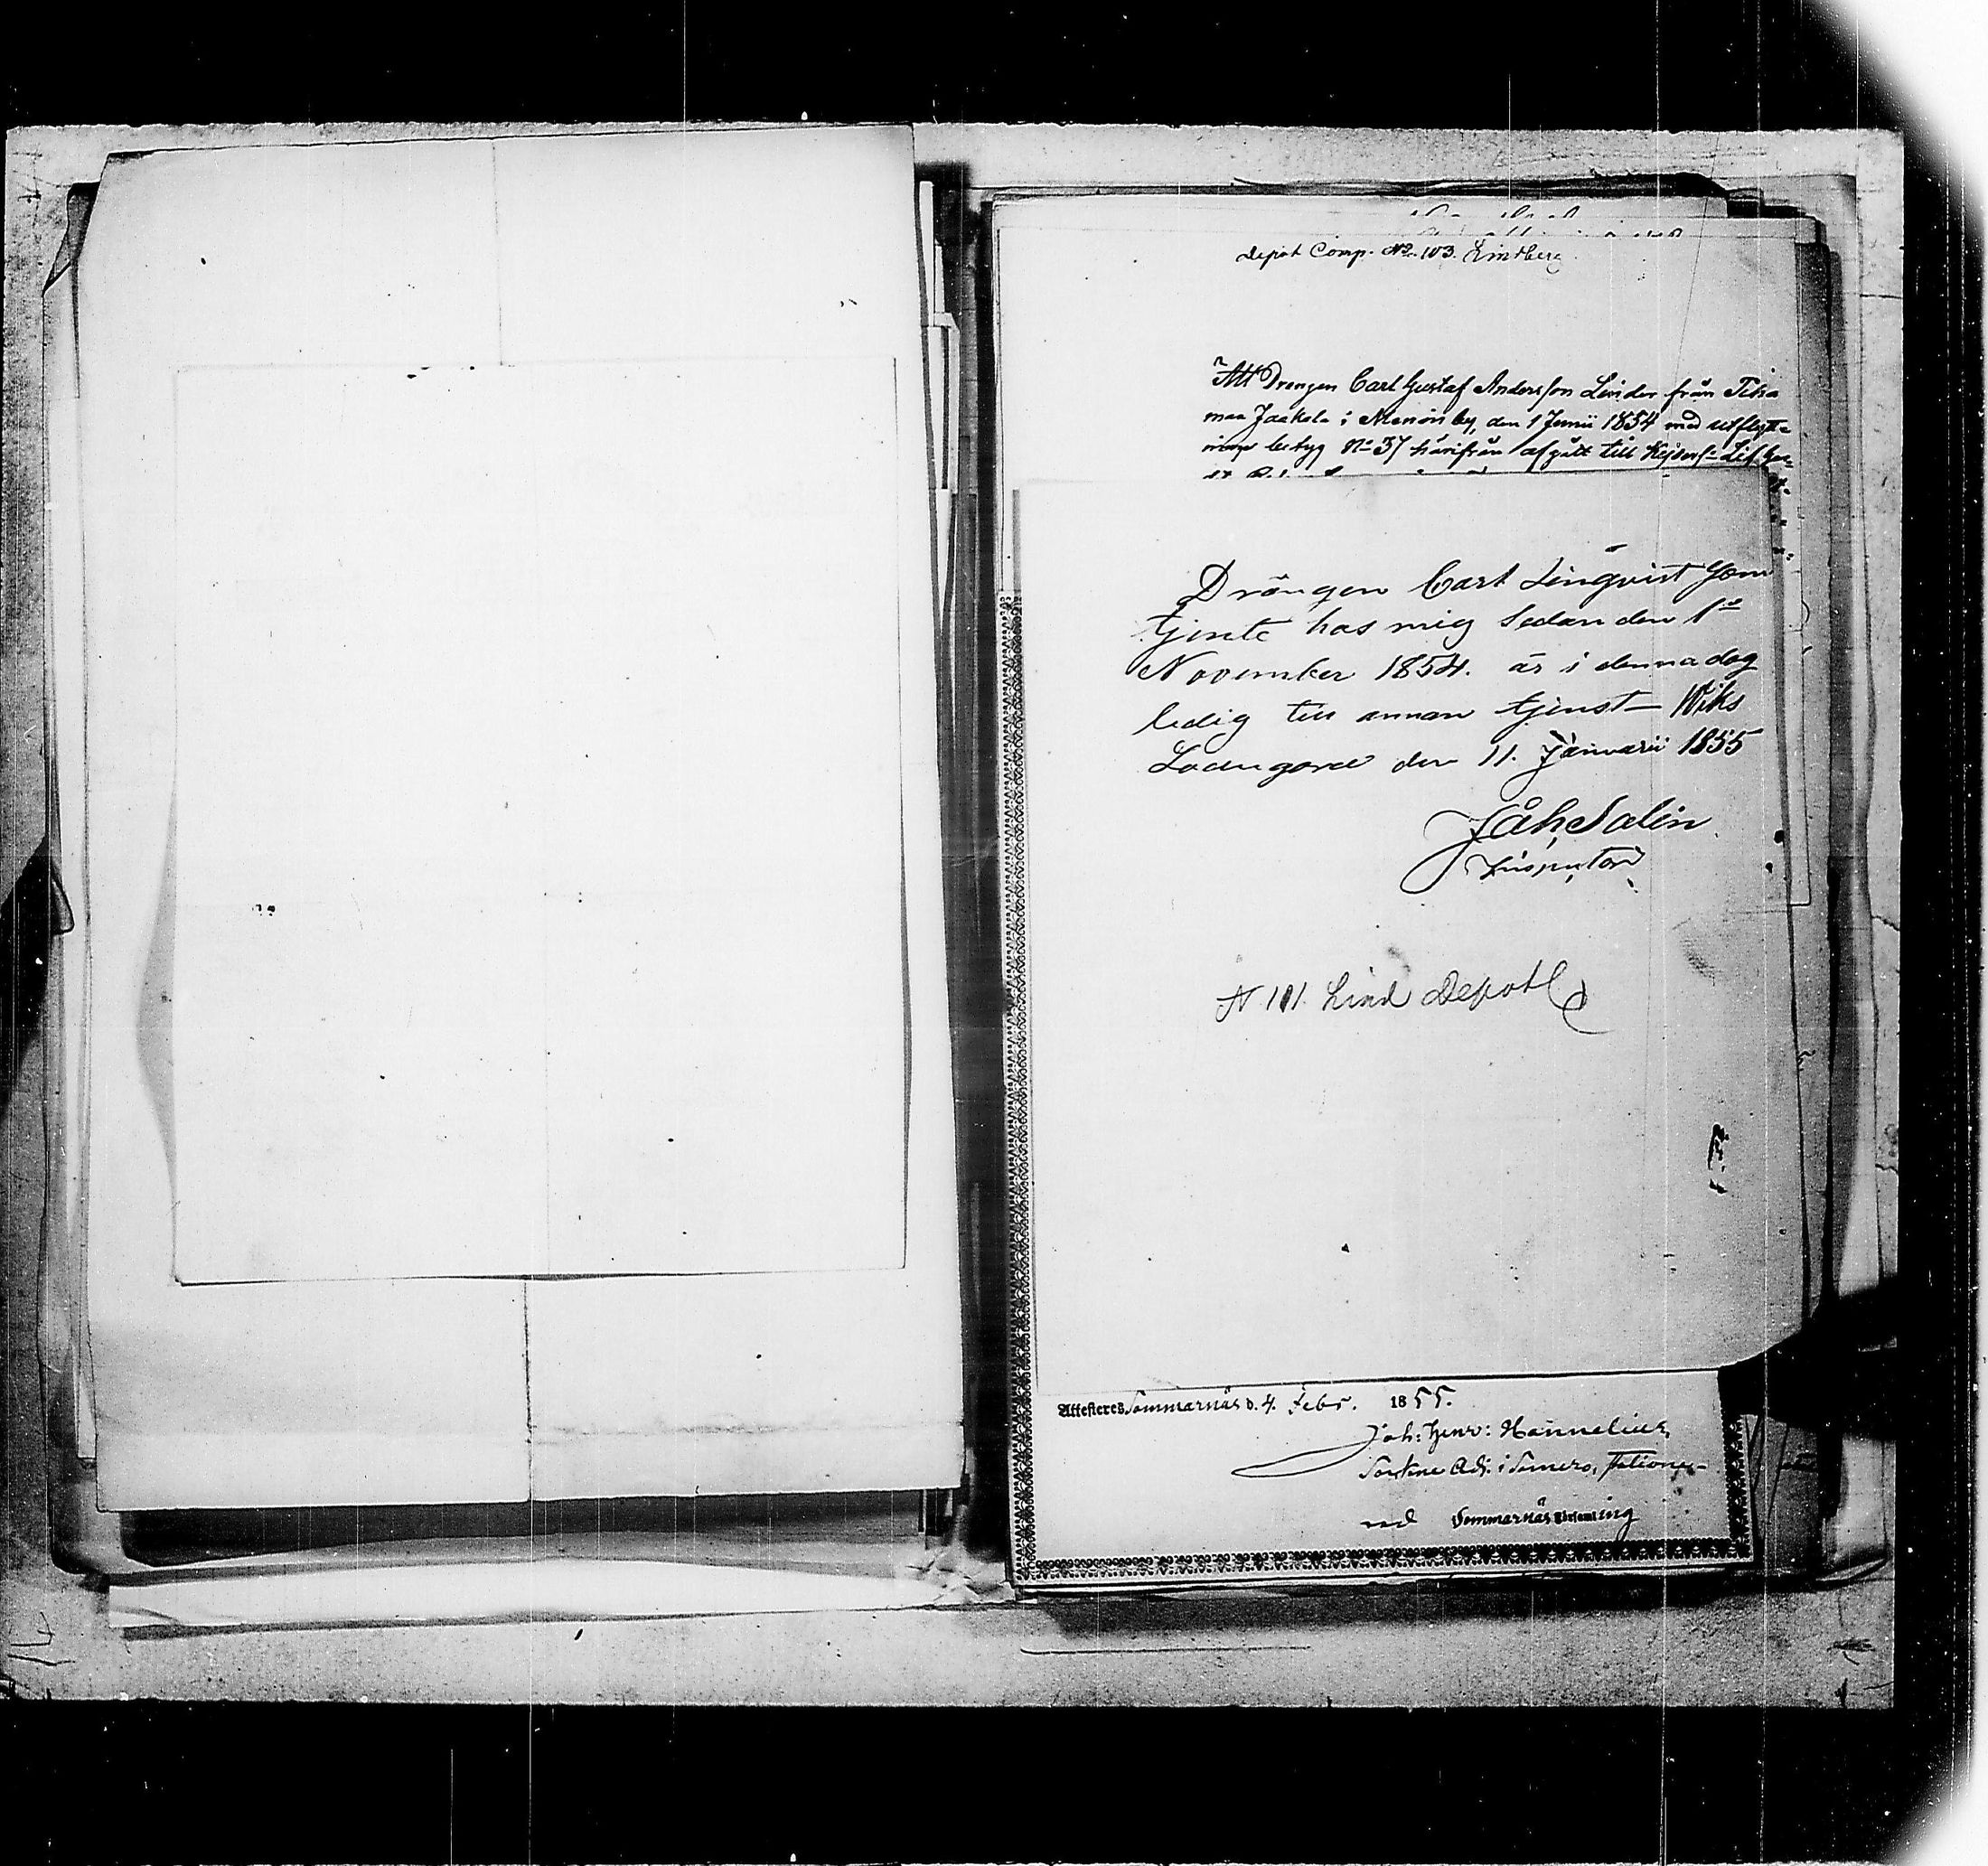 Depot Comp. No 103. Lindberg
Att Drengen Carl Gustaf Andersson Linder från
maa Jaakola i by, den 1 Junii 1854 med utflytt=
nings betyg No 37 härifrån afgått till Kejserl:
Drängen Carl Linqvist som
tjente hos mig sedan den 1ste
November 1854. är i denna dag
ledig till annan tjenst Wiks
Ladugård den 11. Januarii 1855
Joh Salin
Inspector
N 101. Lind Depot C
Attesteres Sommarnäs d. 4. Febr. 1855.
Joh: Henr: Hannelius,
Adj. i Somero,
vid Sommarnäs